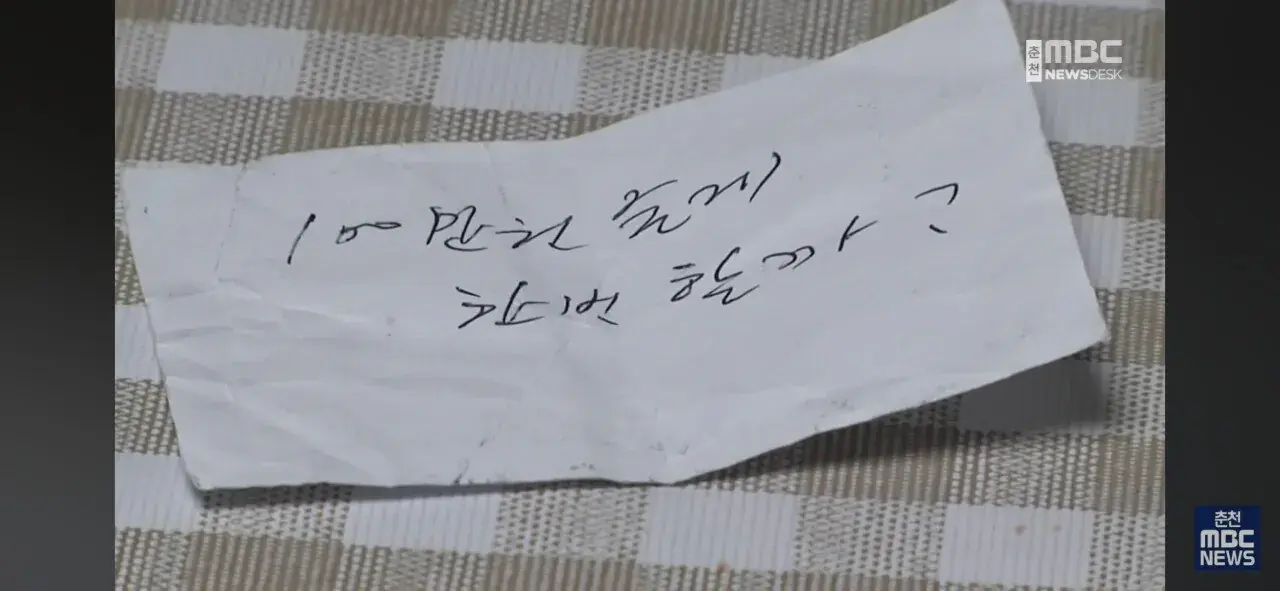 춘천 MBC
NEWSDESK
100만원 줄게
한번 할까 ?
춘천
MBC
NEWS